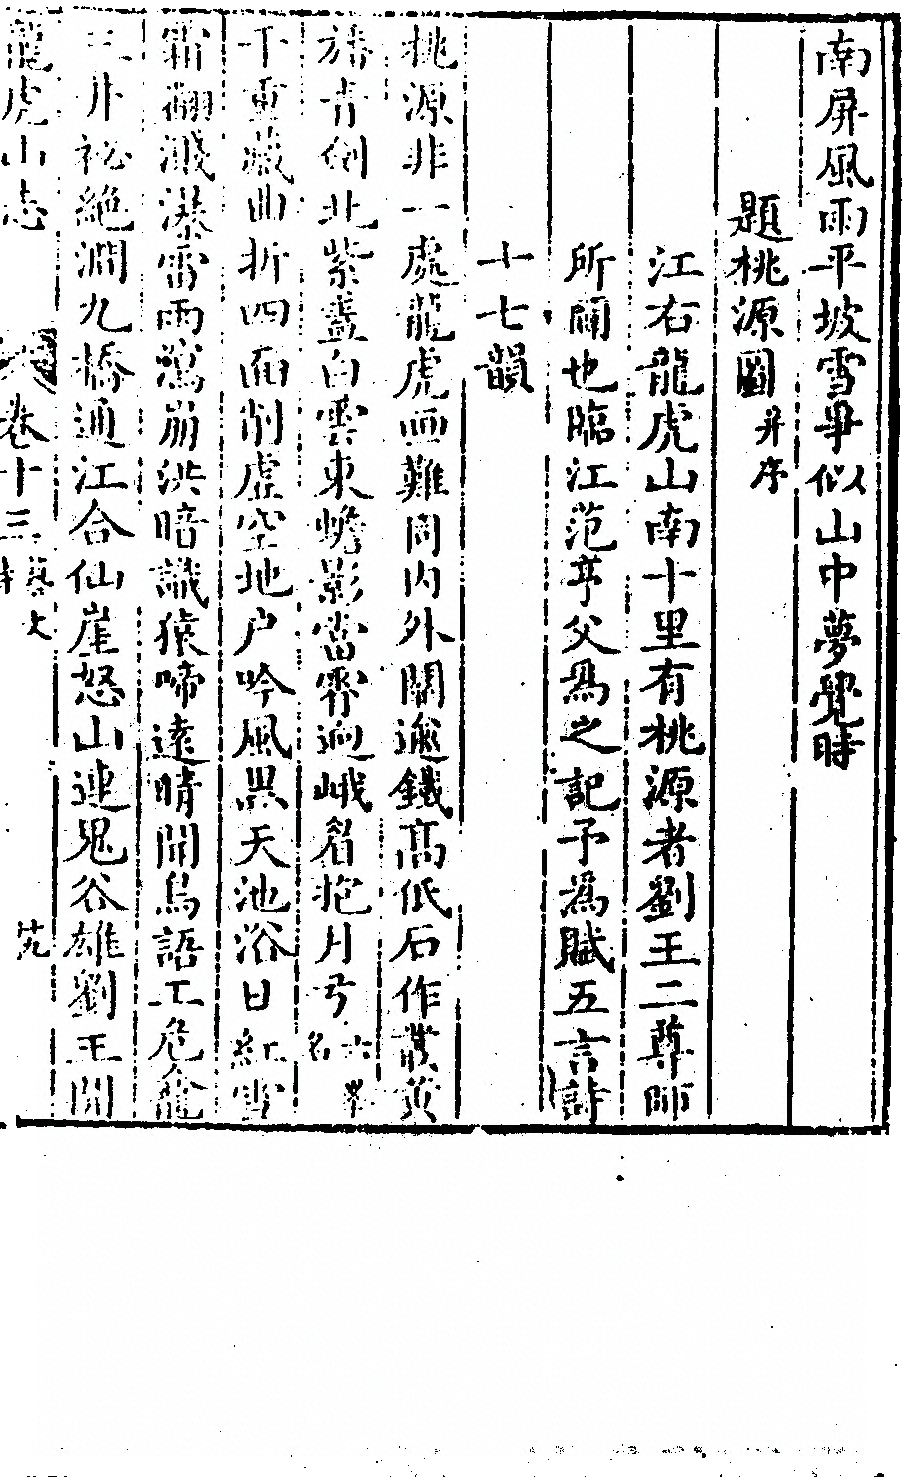 南屏風雨平坡雪爭似山中夢覺時
題桃源圖并序
江右龍虎山南十里有桃源者劉王二尊師
所闢也臨江范亨父爲之記予爲賦五言詩
十七韻
桃源非一處龍虎画難同內外關逾鐵高低石作叢黃
旂青劍北紫蓋白雲東蟾影當霽迥峨眉抱月弓六峯名
千重藏曲折四面削虛空地户吟風黑天池浴日紅雪
霜翻濺瀑雷雨瀉崩洪暗識猿啼遠晴聞鳥語工危龍
三井祕絕澗九橋通江合仙崖怒山連鬼谷雄劉王開
龍虎山志 卷十三藝文